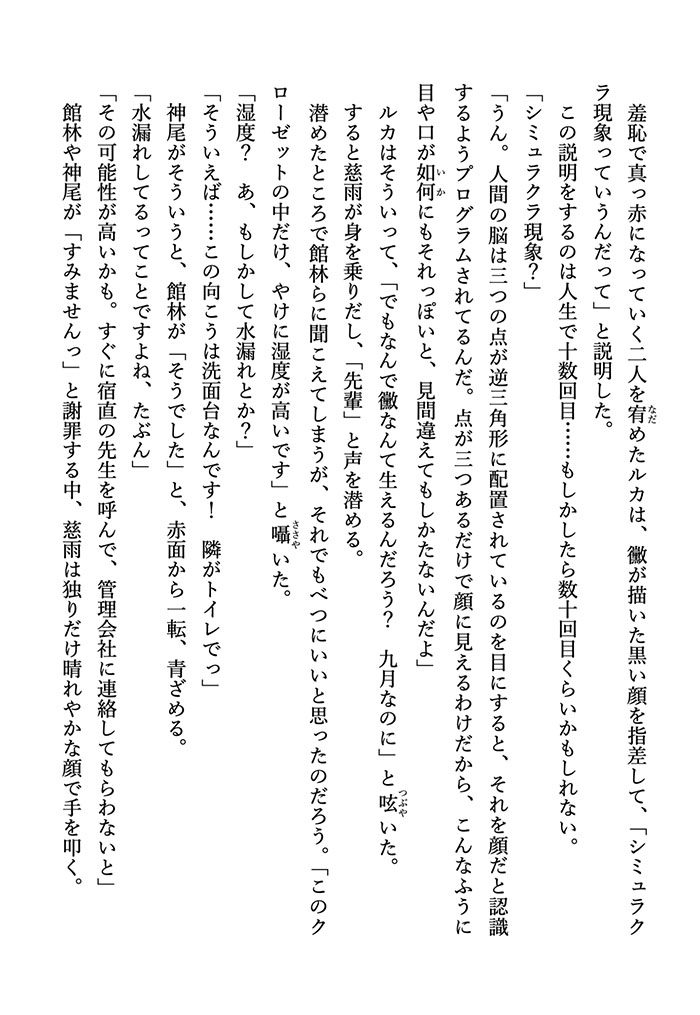 羞恥で真っ赤になっていく二人を宥めたルカは、黴が描いた黒い顔を指差して、「シミュラク
ラ現象っていうんだって」と説明した。
　この説明をするのは人生で十数回目……もしかしたら数十回目くらいかもしれない。
「シミュラクラ現象？」
「うん。人間の脳は三つの点が逆三角形に配置されているのを目にすると、それを顔だと認識
するようプログラムされてるんだ。点が三つあるだけで顔に見えるわけだから、こんなふうに
目や口が如何にもそれっぽいと、見間違えてもしかたないんだよ」
　ルカはそういって、「でもなんで黴なんて生えるんだろう？　九月なのに」と呟いた。
　すると慈雨が身を乗りだし、「先輩」と声を潜める。
　潜めたところで館林らに聞こえてしまうが、それでもべつにいいと思ったのだろう。「このク
ローゼットの中だけ、やけに湿度が高いです」と囁いた。
「湿度？　あ、もしかして水漏れとか？」
「そういえば……この向こうは洗面台なんです！　隣がトイレでっ」
　神尾がそういうと、館林が「そうでした」と、赤面から一転、青ざめる。
「水漏れしてるってことですよね、たぶん」
「その可能性が高いかも。すぐに宿直の先生を呼んで、管理会社に連絡してもらわないと」
　館林や神尾が「すみませんっ」と謝罪する中、慈雨は独りだけ晴れやかな顔で手を叩く。